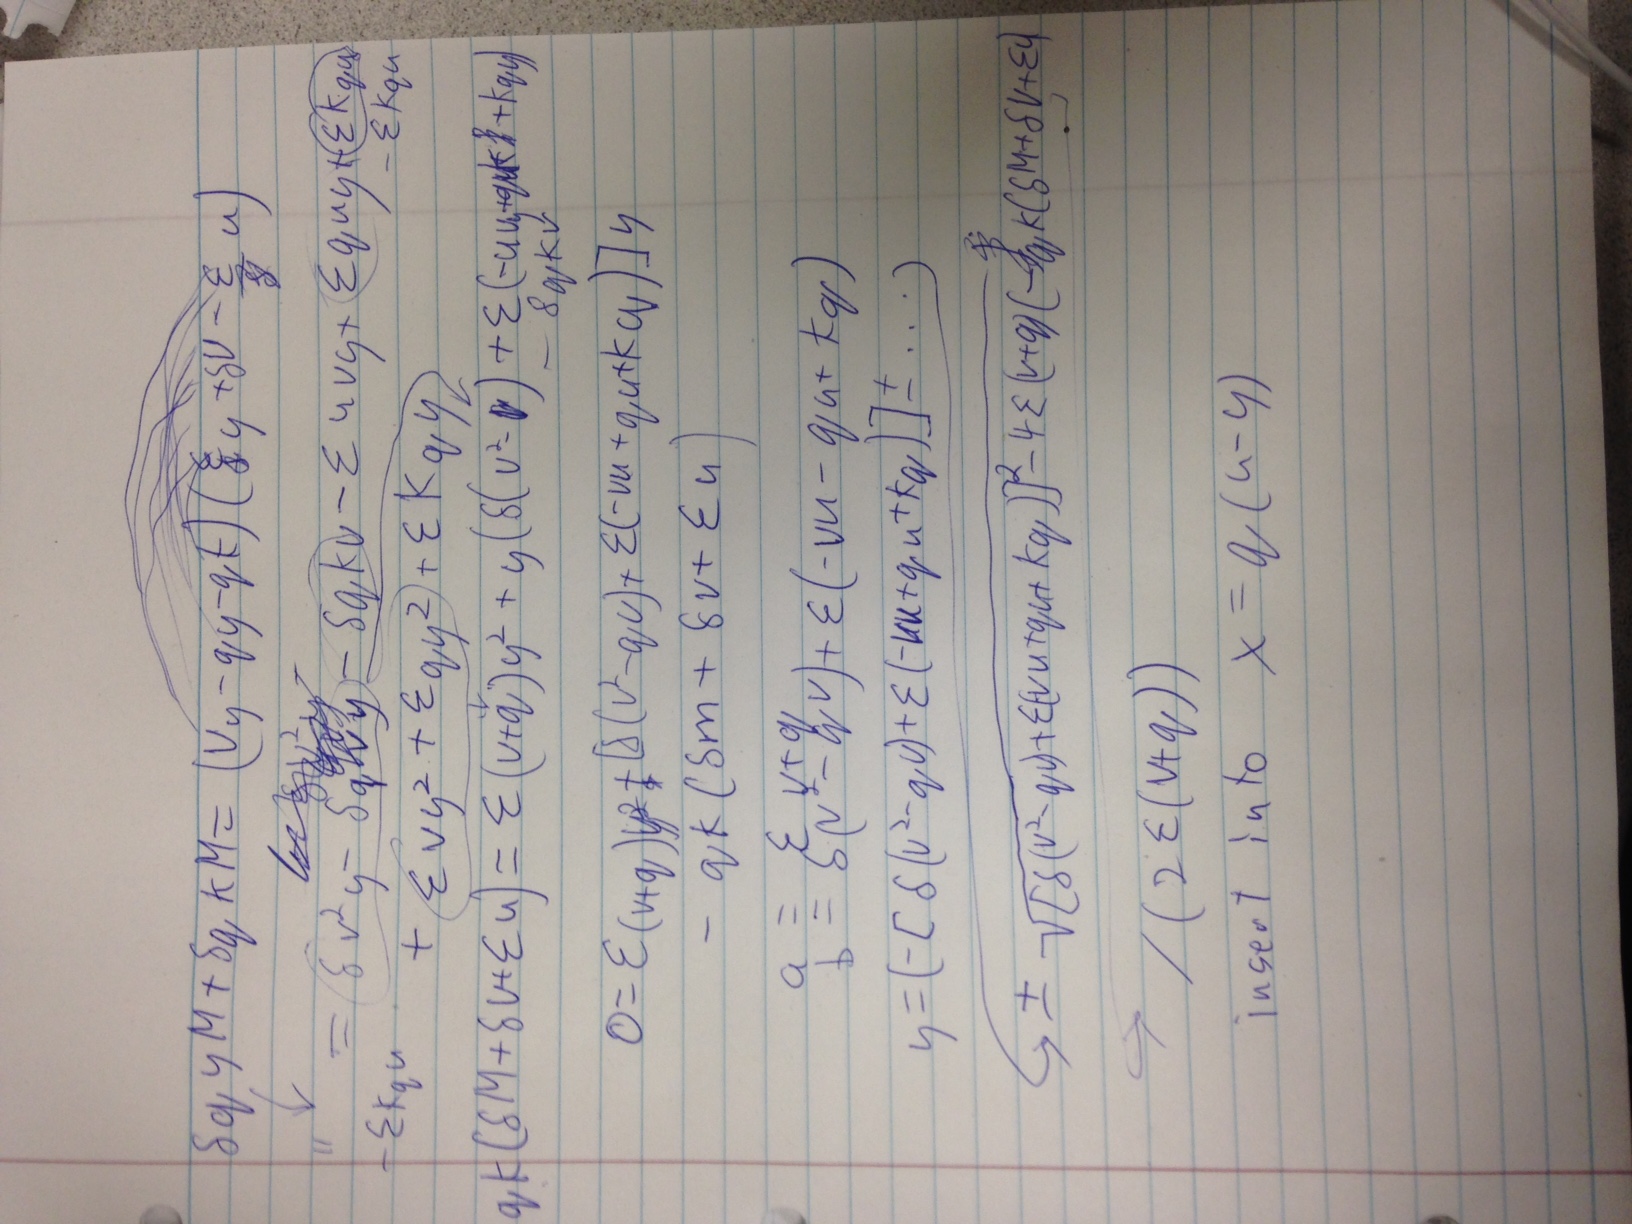 δqyM + δqkM = (Vy - qy - qk)(ε/δ y + δV - ε/δ u)
" = δv²y - δqvy - δqkv - εuvy + εquy + εkqu
- εkqu + εvy² + εqy² + εkqy - εkqu
qk(δM + δv + εu) = ε(v+q)y² + y(δ(v²- ) + ε(-uv+qu + kqy)
- δqkv
0 = ε(v+q)y² + [δ(v²-qv) + ε(-vu + qu + kq)]y
- qk(δm + δv + εu)
a = ε v+q
b = δ(v² - qv) + ε(-vu - qu + kq)
y = (-[δ(v²-qv) + ε(-vu + qu + kq)] ± ...)
± √[δ(v²-qv) + ε(vu + qu + kq)]² - 4ε(v+q)(-qk(δM + δv + εu)
/ (2ε(v+q)))
insert into x = q(u-y)